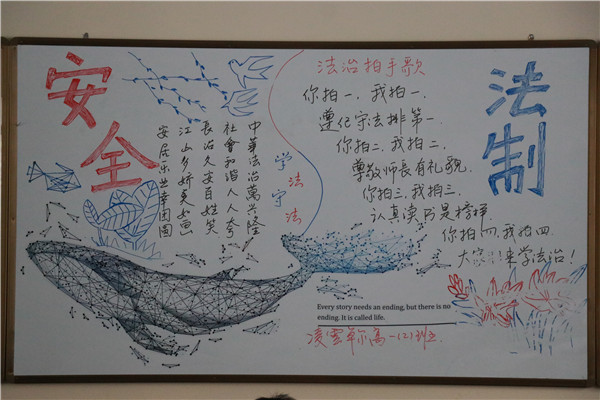 安全
中華法治萬興隆
社會和諧人人夸
長治久安百姓笑
江山多娇美如画
安居乐业幸团圆
学法守法
法治拍手歌
你拍一，我拍一，
遵纪守法排第一
你拍二，我拍二，
尊敬师長有礼貌.
你拍三，我拍三，
认真读书是榜样
你拍四，我拍四
大家来学法治！
法制
Every story needs an ending, but there is no
ending. It is called life.
高一(2)班